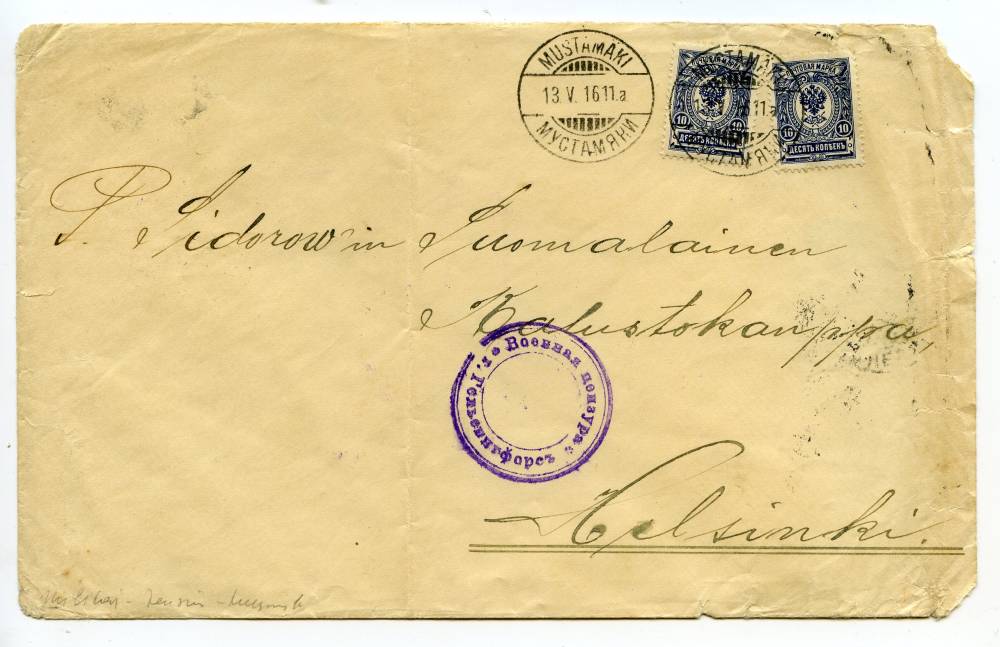 MUSTAMÄKI
13.V.16 11.a
МУСТАМЯКИ
ПОЧТОВАЯ МАРКА
10 10
ДЕСЯТЬ КОПѢЕКЪ
ПОЧТОВАЯ МАРКА
10 10
ДЕСЯТЬ КОПѢЕКЪ
P. Sidorow'in Suomalainen
Kalustokauppa,
Военная цензура
г. Гельсингфорсъ
Helsinki.